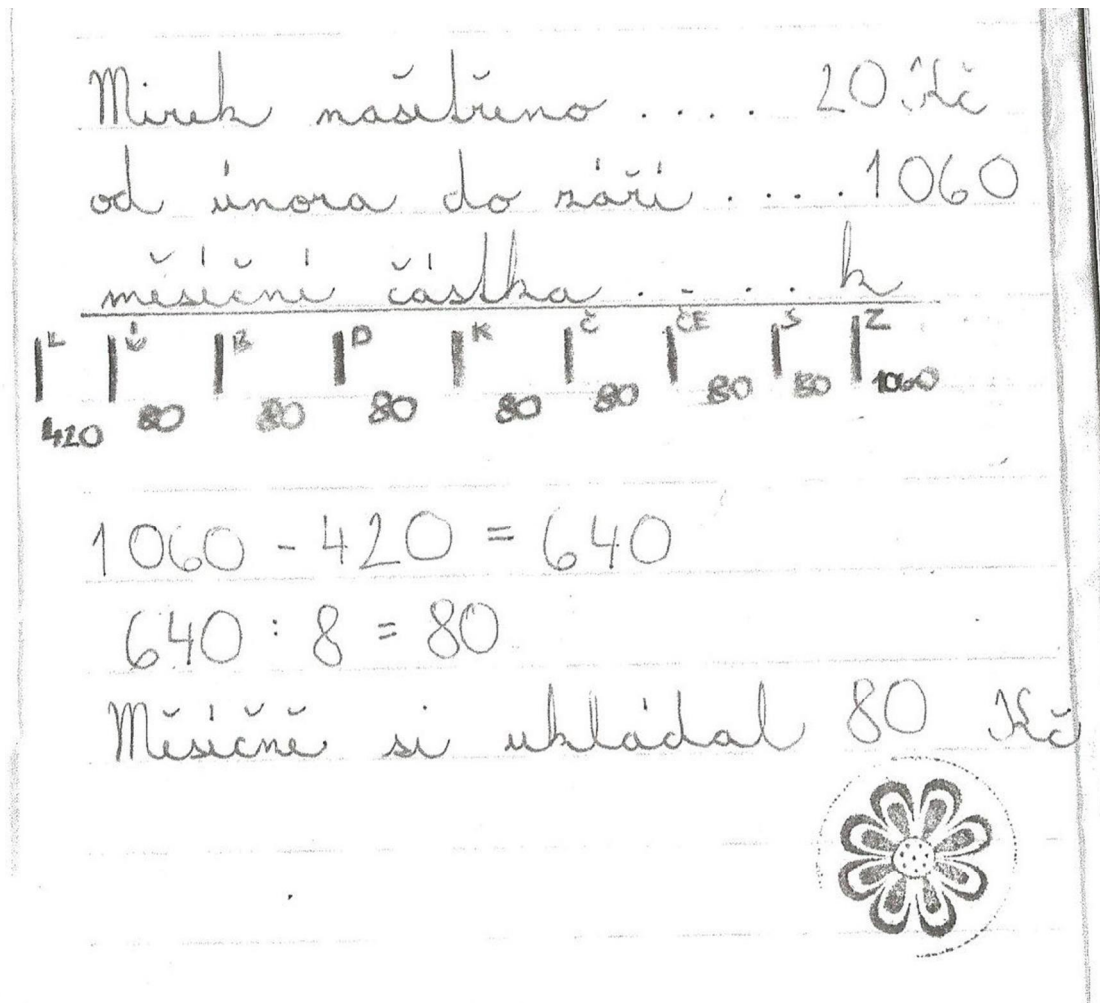 Mirek našetřeno .... 20 Kč
od února do září .... 1060
měsíční částka .... k
L Ú B D K Č ČE S Z
420 80 80 80 80 80 80 80 1060
1060 - 420 = 640
640 : 8 = 80
Měsíčně si ukládal 80 Kč